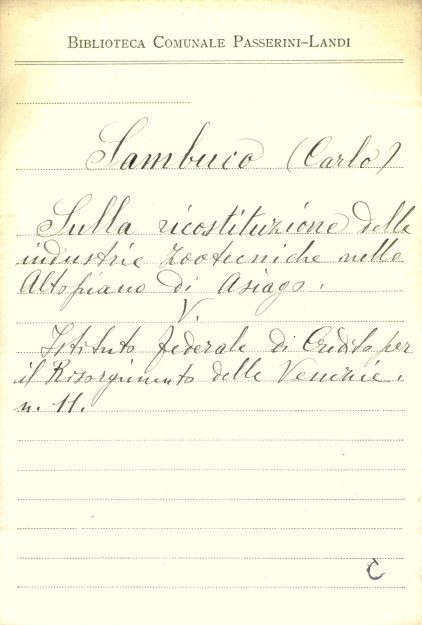 BIBLIOTECA COMUNALE PASSERINI-LANDI
Sambuco (Carlo)
Sulla ricostituzione delle
industrie zootecniche nello
Altopiano di Asiago.
V.
Istituto federale di Credito per
il Risorgimento delle Venezie.
n. 11.
C